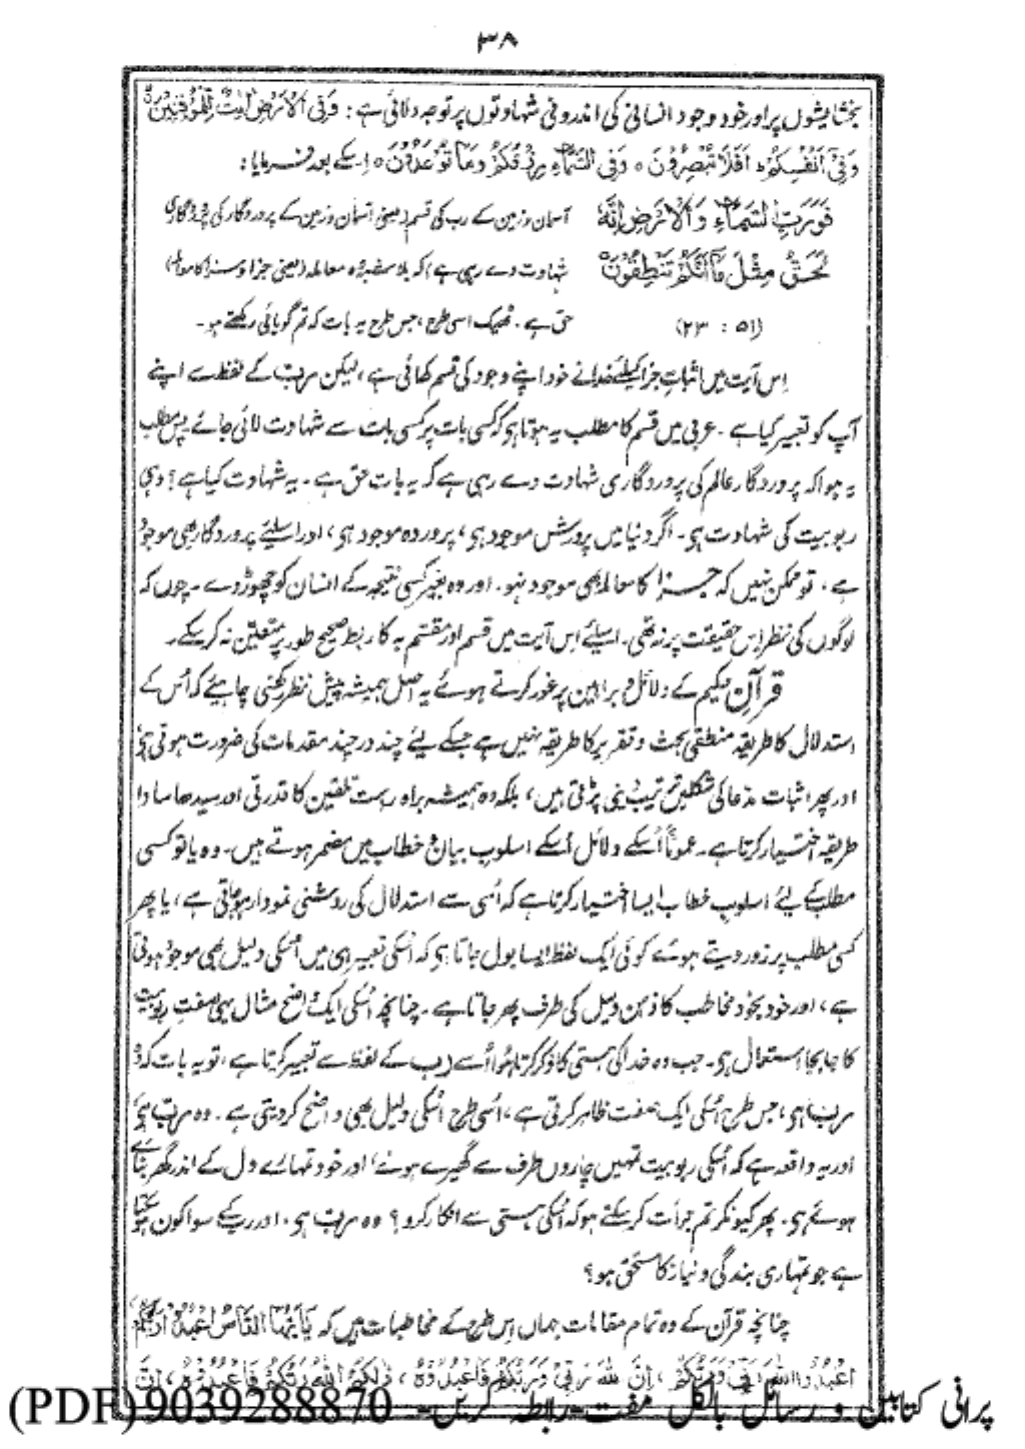 ۳۸
بخشایشوں پر اور خود وجود انسانی کی اندرونی شہادتوں پر توجہ دلائی ہے : وَفِی الْاَرْضِ اٰیٰتٌ لِّلْمُوْقِنِیْنَ
وَفِیْ اَنْفُسِکُمْ ؕ اَفَلَا تُبْصِرُوْنَ ہ وَفِی السَّمَآءِ رِزْقُکُمْ وَمَا تُوْعَدُوْنَ ہ اِسکے بعد فرمایا :
فَوَرَبِّ السَّمَآءِ وَالْاَرْضِ اِنَّہٗ آسمان و زمین کے رب کی قسم (یعنی آسمان و زمین کے پروردگار کی پروردگاری
لَحَقٌّ مِّثْلَ مَآ اَنَّکُمْ تَنْطِقُوْنَ شہادت دے رہی ہے) کہ بلاشبہ وہ معاملہ (یعنی جزا و سزا کا معاملہ)
(۵۱ : ۲۳) حق ہے۔ ٹھیک اسی طرح، جس طرح یہ بات کہ تم گویائی رکھتے ہو۔
اِس آیت میں اثباتِ جزا کیلئے خدا نے خود اپنے وجود کی قسم کھائی ہے، لیکن رب کے لفظ سے اپنے
آپ کو تعبیر کیا ہے۔ عربی میں قسم کا مطلب یہ ہوتا ہے کہ کسی بات پر کسی بات سے شہادت لائی جائے پس مطلب
یہ ہوا کہ پروردگارِ عالم کی پروردگاری شہادت دے رہی ہے کہ یہ بات حق ہے۔ یہ شہادت کیا ہے؟ وہی
ربوبیت کی شہادت ہے۔ اگر دنیا میں پرورش موجود ہے، پروردہ موجود ہے، اور اسلیے پروردگار بھی موجود
ہے، تو ممکن نہیں کہ جزا کا معاملہ بھی موجود نہو۔ اور وہ بغیر کسی نتیجہ کے انسان کو چھوڑ دے۔ چوں کہ
لوگوں کی نظر اِس حقیقت پر نہ تھی، اسلیے اِس آیت میں قسم اور مقسم بہ کا ربط صحیح طور پر متعین نہ کر سکے۔
قرآنِ حکیم کے دلائل و براہین پر غور کرتے ہوئے یہ اصل ہمیشہ پیش نظر رکھنی چاہیے کہ اُس کے
استدلال کا طریقہ منطقی بحث و تقریر کا طریقہ نہیں ہے جسکے لیے چند در چند مقدمات کی ضرورت ہوتی ہے
اور پھر اثبات مدعا کی شکلیں ترتیب دینی پڑتی ہیں، بلکہ وہ ہمیشہ براہ راست تلقین کا قدرتی اور سیدھا سادا
طریقہ اختیار کرتا ہے۔ عموماً اُسکے دلائل اُسکے اسلوبِ بیان و خطاب میں مضمر ہوتے ہیں۔ وہ یا تو کسی
مطلب کے لیے اسلوبِ خطاب ایسا اختیار کرتا ہے کہ اُسی سے استدلال کی روشنی نمودار ہو جاتی ہے، یا پھر
کسی مطلب پر زور دیتے ہوئے کوئی ایک لفظ ایسا بول جاتا ہے کہ اُسکی تعبیر ہی میں اُسکی دلیل بھی موجود ہوتی
ہے، اور خود بخود مخاطب کا ذہن دلیل کی طرف پھر جاتا ہے۔ چنانچہ اُسکی ایک واضح مثال یہی صفتِ ربوبیت
کا جا بجا استعمال ہے۔ جب وہ خدا کی ہستی کا ذکر کرتا ہوا اُسے رب کے لفظ سے تعبیر کرتا ہے، تو یہ بات کہ وہ
رب ہے، جس طرح اُسکی ایک صفت ظاہر کرتی ہے، اُسی طرح اُسکی دلیل بھی واضح کر دیتی ہے۔ وہ رب ہے
اور یہ واقعہ ہے کہ اُسکی ربوبیت تمہیں چاروں طرف سے گھیرے ہوئے، اور خود تمہارے دل کے اندر گھر بنائے
ہوئے ہے۔ پھر کیونکر تم جرأت کر سکتے ہو کہ اُسکی ہستی سے انکار کرو؟ وہ رب ہے، اور رب کے سوا کون ہو سکتا
ہے جو تمہاری بندگی و نیاز کا مستحق ہو؟
چنانچہ قرآن کے وہ تمام مقامات جہاں اِس طرح کے مخاطبات ہیں کہ یٰٓاَیُّھَا النَّاسُ اعْبُدُوْا رَبَّکُمُ
اعْبُدُوا اللہَ رَبِّیْ وَرَبَّکُمْ، اِنَّ اللہَ رَبِّیْ وَرَبُّکُمْ فَاعْبُدُوْہُ، ذٰلِکُمُ اللہُ رَبُّکُمْ فَاعْبُدُوْہُ، اِنَّ
پرانی کتابیں و رسائل بالکل مفت۔ رابطہ کریں۔ 9039288870 (PDF)